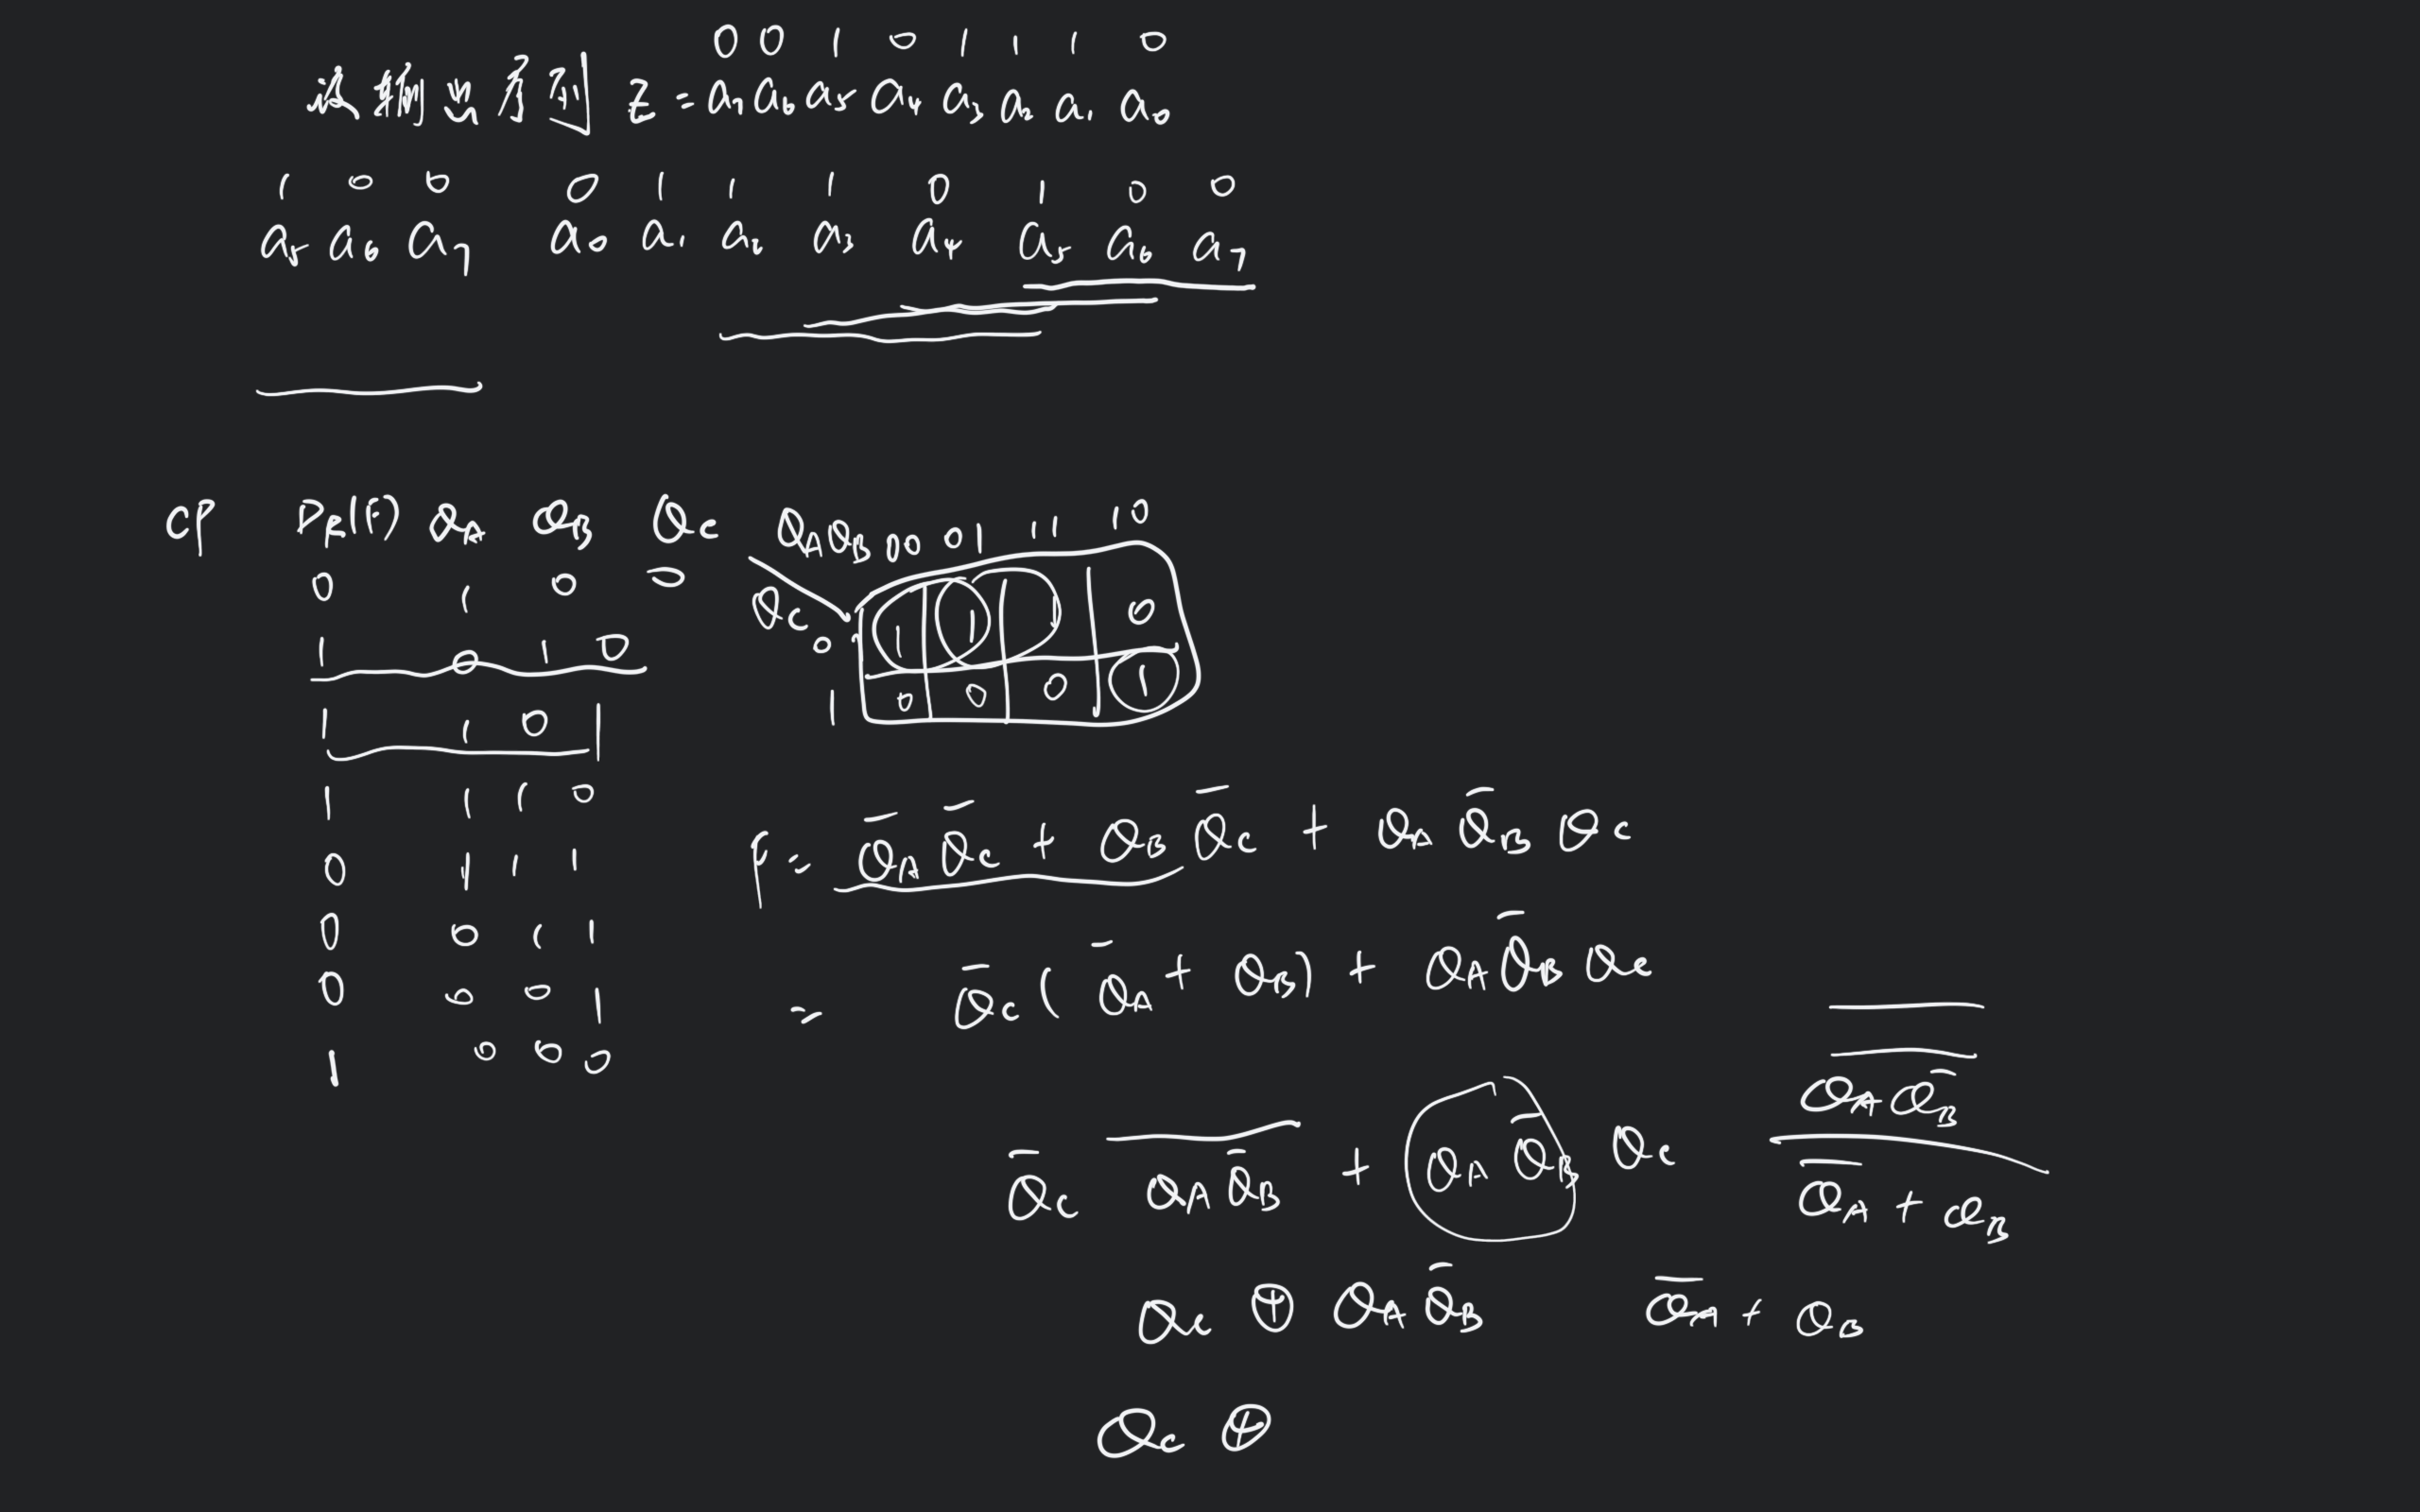 0 0 1 0 1 1 1 0
设输出序列 Z = a₇ a₆ a₅ a₄ a₃ a₂ a₁ a₀
1 0 0 0 1 1 1 0 1 0 0
a₅ a₆ a₇ a₀ a₁ a₂ a₃ a₄ a₅ a₆ a₇
CP D_R(F) Q_A Q_B Q_C
0 1 0 0
1 0 1 0
1 1 0 1
1 1 1 0
0 1 1 1
0 0 1 1
0 0 0 1
1 0 0 0
Q_A Q_B 00 01 11 10
Q_C
0 1 1 1 0
1 0 0 0 1
F = Q̄_A Q̄_C + Q_B Q̄_C + Q_A Q̄_B Q_C
= Q̄_C ( Q̄_A + Q_B ) + Q_A Q̄_B Q_C
Q_A Q̄_B
Q̄_C \overline{Q_A Q̄_B} + Q_A Q̄_B Q_C
Q̄_A + Q_B
Q_C ⊕ Q_A Q̄_B
Q̄_A + Q_B
Q_C ⊕